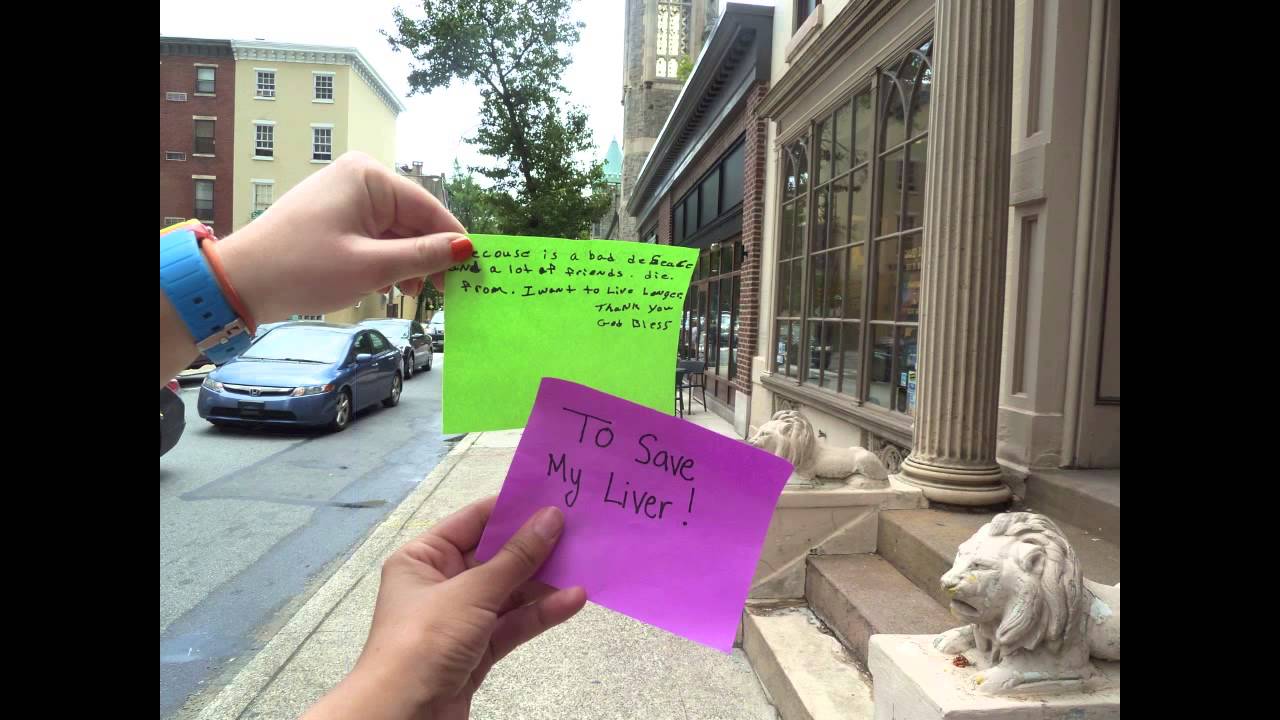 ecouse is a bad deseace
and a lot of friends. die.
from. I want to Live Longer
Thank you
God Bless
To Save
My Liver!